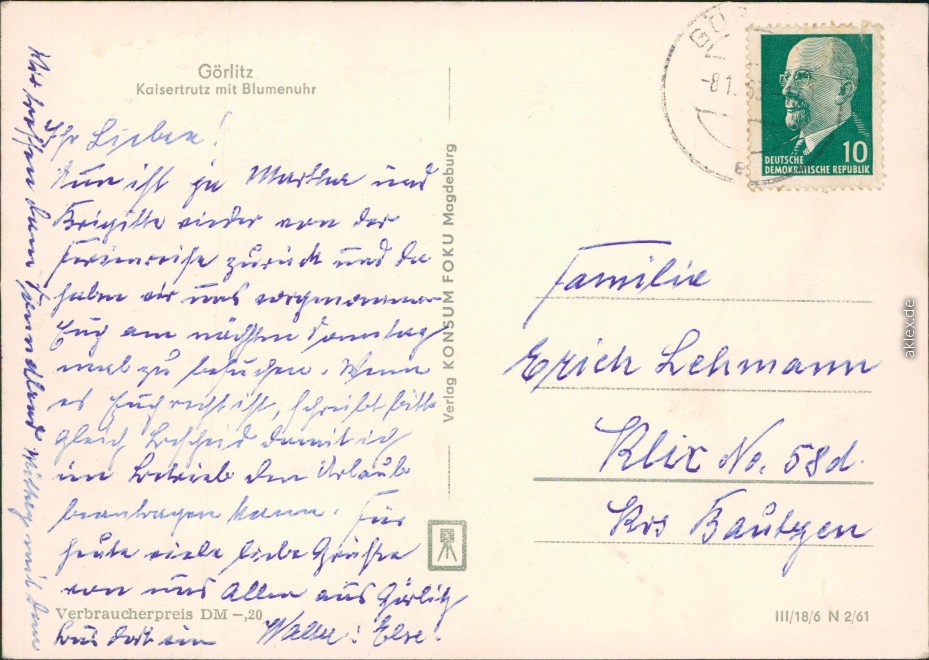 Görlitz
Kaisertrutz mit Blumenuhr
Ihr Lieben!
Nun ist ja Martha und
Brigitte wieder von der
Ferienreise zurück und da
haben wir uns vorgenommen
Euch am nächsten Sonntag
mal zu besuchen. Wenn
es Euch recht ist, schreibt bitte
gleich Bescheid damit ich
im Betrieb den Urlaub
beantragen kann. Für
heute viele liebe Grüße
von uns Allen aus Görlitz
Walter u. Else.
Wir treffen dann
Mittag mit dem
Bus dort ein
Verbraucherpreis DM –,20
Verlag KONSUM FOKU Magdeburg
-8.1.
DEUTSCHE 10
DEMOKRATISCHE REPUBLIK
Familie
Erich Lehmann
Klix No. 58d.
Krs Bautzen
III/18/6 N 2/61
aklex.de